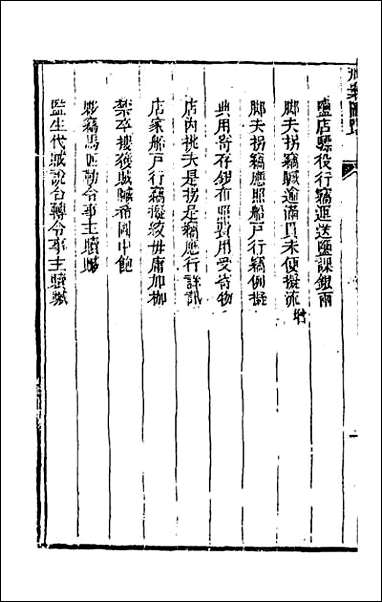 鹽店縣役行竊運送鹽課銀兩
脚夫拐竊贓逾滿貫未便擬流 增
脚夫拐竊應照船戶行竊例擬
典用寄存銀布照費用受寄物
店內挑夫是拐是竊應行詳訊
店家船戶行竊擬絞毋庸加枷
禁卒摟獲賊贓希圖中飽
夥竊馬匹勒令事主贖贓
監生代賊說合轉令事主贖贓